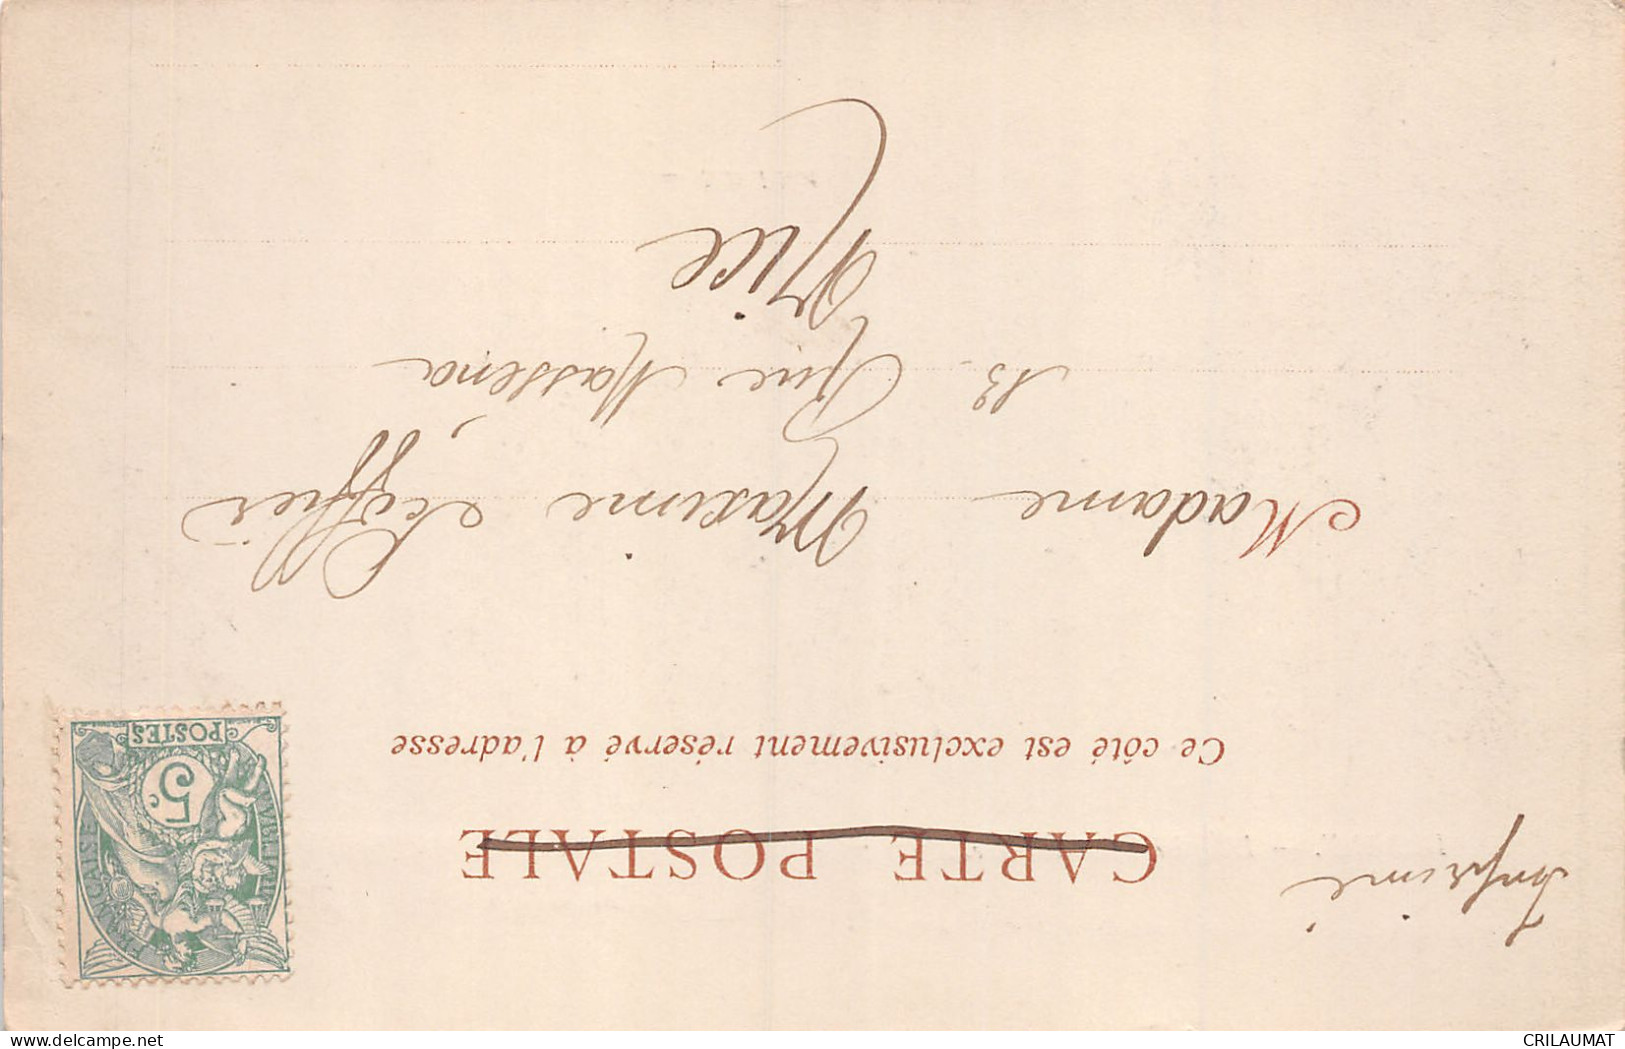 Imprimé
CARTE POSTALE
Ce côté est exclusivement réservé à l'adresse
RÉPUBLIQUE FRANÇAISE
5c
POSTES
Madame Maxime
13. Rue Massena
Nice
delcampe.net
CRILAUMAT